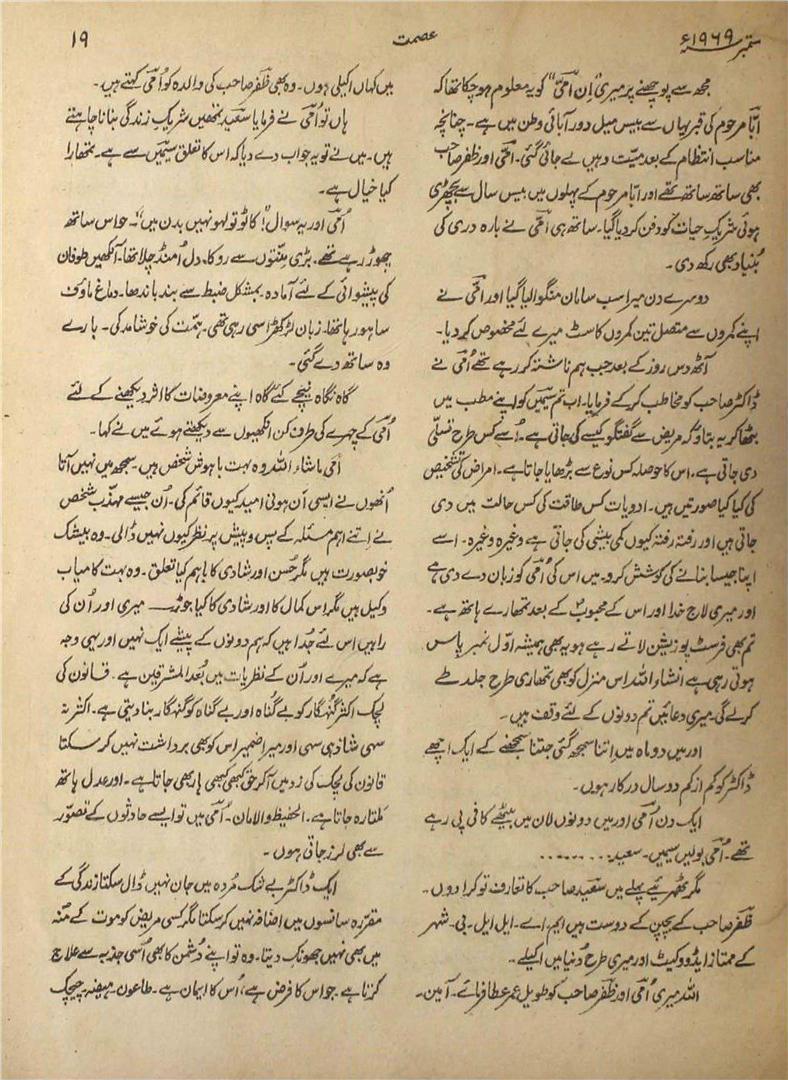 ستمبر ۱۹۶۹ء
عصمت
۱۹
مجھ سے پوچھنے پر میری "اِن امّی" کو یہ معلوم ہوچکا تھا کہ
ابّا مرحوم کی قبر یہاں سے بیس میل دور آبائی وطن میں ہے۔ چنانچہ
مناسب انتظام کے بعد میّت وہیں لے جائی گئی۔ امّی اور ظفر صاحب
بھی ساتھ ساتھ تھے اور ابّا مرحوم کے پہلوں میں بیس سال سے بچھڑی
ہوئی شریکِ حیات کو دفن کر دیا گیا۔ ساتھ ہی امّی نے بارہ دری کی
بُنیاد بھی رکھ دی۔
دوسرے دن میرا سب سامان منگوا لیا گیا اور امّی نے
اپنے کمروں سے متصل تین کمروں کا سٹ میرے لئے مخصوص کر دیا۔
آٹھ دس روز کے بعد جب ہم ناشتہ کر رہے تھے اُمّی نے
ڈاکٹر صاحب کو مخاطب کر کے فرمایا۔ اب تم سیمیں کو اپنے مطب میں
بٹھا کر یہ بتاؤ کہ مریض سے گفتگو کیسے کی جاتی ہے۔ اُسے کس طرح تسلّی
دی جاتی ہے۔ اس کا حوصلہ کس نوع سے بڑھایا جاتا ہے۔ امراض کی تشخیص
کی کیا کیا صورتیں ہیں۔ ادویات کس طاقت کی کس حالت میں دی
جاتی ہیں اور رفتہ رفتہ کیوں کمی بیشی کی جاتی ہے وغیرہ وغیرہ۔ اسے
اپنا جیسا بنانے کی کوشش کرو۔ میں اس کی اُمّی کو زبان دے دی ہے
اور میری لاج خدا اور اس کے محبوبؐ کے بعد تمھارے ہاتھ ہے۔
تم بھی فرسٹ پوزیشن لاتے رہے ہو یہ بھی ہمیشہ اوّل نمبر پاس
ہوتی رہی ہے انشاء اللہ اس منزل کو بھی تمھاری طرح جلد طے
کرلے گی۔ میری دعائیں تم دونوں کے لئے وقف ہیں۔
اور میں دو ماہ میں اِتنا سمجھ گئی جتنا سمجھنے کے لئے ایک اچھے
ڈاکٹر کو کم از کم دو سال درکار ہوں۔
ایک دن اُمّی اور میں دونوں لان میں بیٹھے کافی پی رہے
تھے۔ اُمّی بولیں سیمیں۔ سعید.........
مگر ٹھہریئے پہلے میں سعید صاحب کا تعارف تو کرا دوں۔
ظفر صاحب کے بچپن کے دوست ہیں ایم۔اے۔ ایل ایل۔ بی۔ شہر
کے ممتاز ایڈووکیٹ اور میری طرح دُنیا میں اکیلے۔
اللہ میری اُمّی اور ظفر صاحب کو طویل عمر عطا فرمائے۔ آمین۔
میں کہاں اکیلی ہوں۔ وہ بھی ظفر صاحب کی والدہ کو اُمّی کہتے ہیں۔
ہاں تو اُمّی نے فرمایا سعید تمھیں شریکِ زندگی بنانا چاہتے
ہیں۔ میں نے تو یہ جواب دے دیا کہ اس کا تعلق سیمیں سے ہے۔ تمھارا
کیا خیال ہے۔
اُمّی اور یہ سوال! "کاٹو تو لہو نہیں بدن میں"۔ حواس ساتھ
چھوڑ رہے تھے۔ بڑی منّتوں سے روکا۔ دل اُمنڈ چلا تھا۔ آنکھیں طوفان
کی پیشوائی کے لئے آمادہ۔ بمشکل ضبط سے بند باندھا۔ دماغ ماؤف
سا ہو رہا تھا۔ زبان لڑکھڑا سی رہی تھی۔ ہمّت کی خوشامد کی۔ بارے
وہ ساتھ دے گئی۔
گاہ نگاہ نیچے کئے گاہ اپنے معروضات کا اثر دیکھنے کے لئے
اُمّی کے چہرے کی طرف کن انکھیوں سے دیکھتے ہوئے میں نے کہا۔
امّی ماشاء اللہ وہ بہت باہوش شخص ہیں۔ سمجھ میں نہیں آتا
اُنھوں نے ایسی اَن ہونی امید کیوں قائم کی۔ اُن جیسے مہذّب شخص
نے اِتنے اہم مسئلہ کے پس و پیش پر نظر کیوں نہیں ڈالی۔ وہ بیشک
خوبصورت ہیں مگر حُسن اور شادی کا باہم کیا تعلق۔ وہ بہت کامیاب
وکیل ہیں مگر اس کمال کا اور شادی کا کیا جوڑ ـــ میری اور اُن کی
راہیں اس لئے جُدا ہیں کہ ہم دونوں کے پیشے ایک نہیں اور یہی وجہ
ہے کہ میرے اور اُن کے نظریات میں بُعد المشرقین ہے۔ قانون کی
لچک اکثر گنہگار کو بے گناہ اور بے گناہ کو گنہگار بنا دیتی ہے۔ اکثر نہ
سہی شاذ ہی سہی اور میرا ضمیر اس کو بھی برداشت نہیں کر سکتا
قانون کی لچک کی زد میں آکر حق کبھی کبھی ہار بھی جاتا ہے۔ اور عدل ہاتھ
مَلتا رہ جاتا ہے۔ الحفیظ والامان۔ اُمّی میں تو ایسے حادثوں کے تصوّر
سے بھی لرز جاتی ہوں۔
ایک ڈاکٹر بے شک مُردہ میں جان نہیں ڈال سکتا زندگی کے
مقررّہ سانسوں میں اضافہ نہیں کر سکتا مگر کسی مریض کو موت کے مُنہ
میں بھی نہیں جھونک دیتا۔ وہ تو اپنے دُشمن کا بھی اُسی جذبہ سے علاج
کرتا ہے جو اس کا فرض ہے، اُس کا ایمان ہے۔ طاعون۔ ہیضہ۔ چیچک